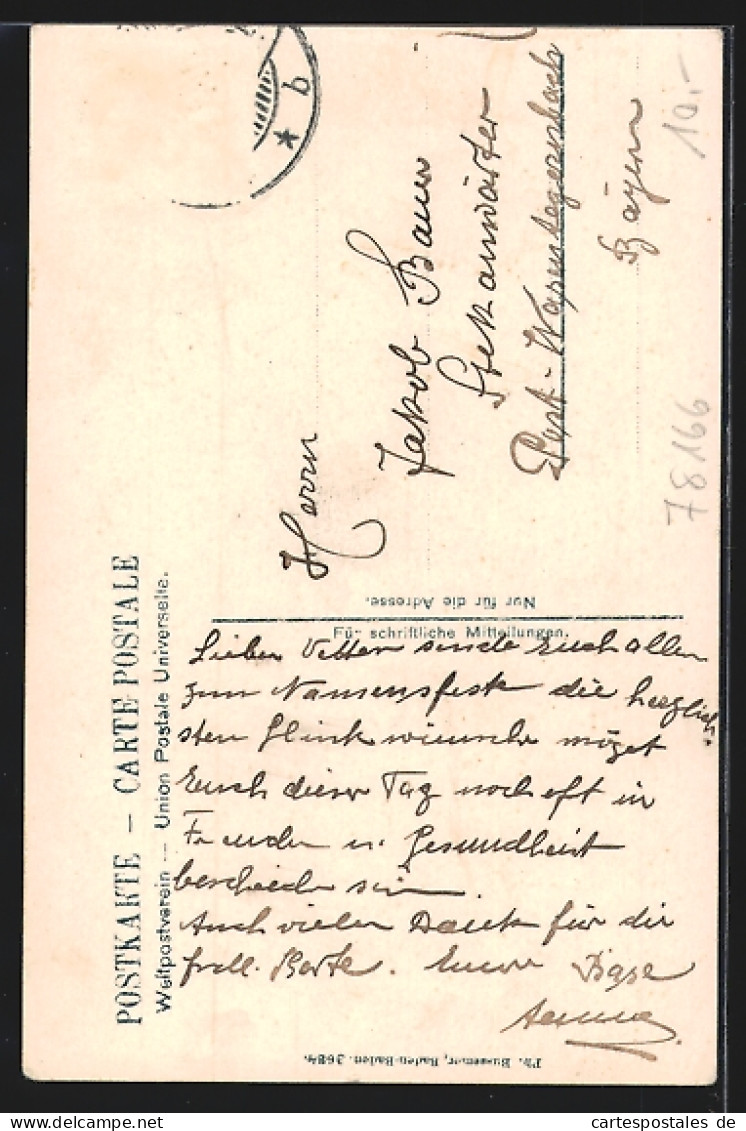 POSTKARTE – CARTE POSTALE
Weltpostverein – Union Postale Universelle.
b
Herrn
Jakob Bauer
Stekanwärter
Post-
Bayern
10.-
78166
Nur für die Adresse.
Für schriftliche Mitteilungen.
Lieber Vetter sende Euch allen
zum Namensfeste die herzlich-
sten Glückwünsche möget
Euch dieser Tag noch oft in
Freuden u. Gesundheit
beschieden sein.
Auch vielen Dank für die
frdl. Karte. Eure
Ph. Bussemer, Baden-Baden. 3684.
cartespostales.de